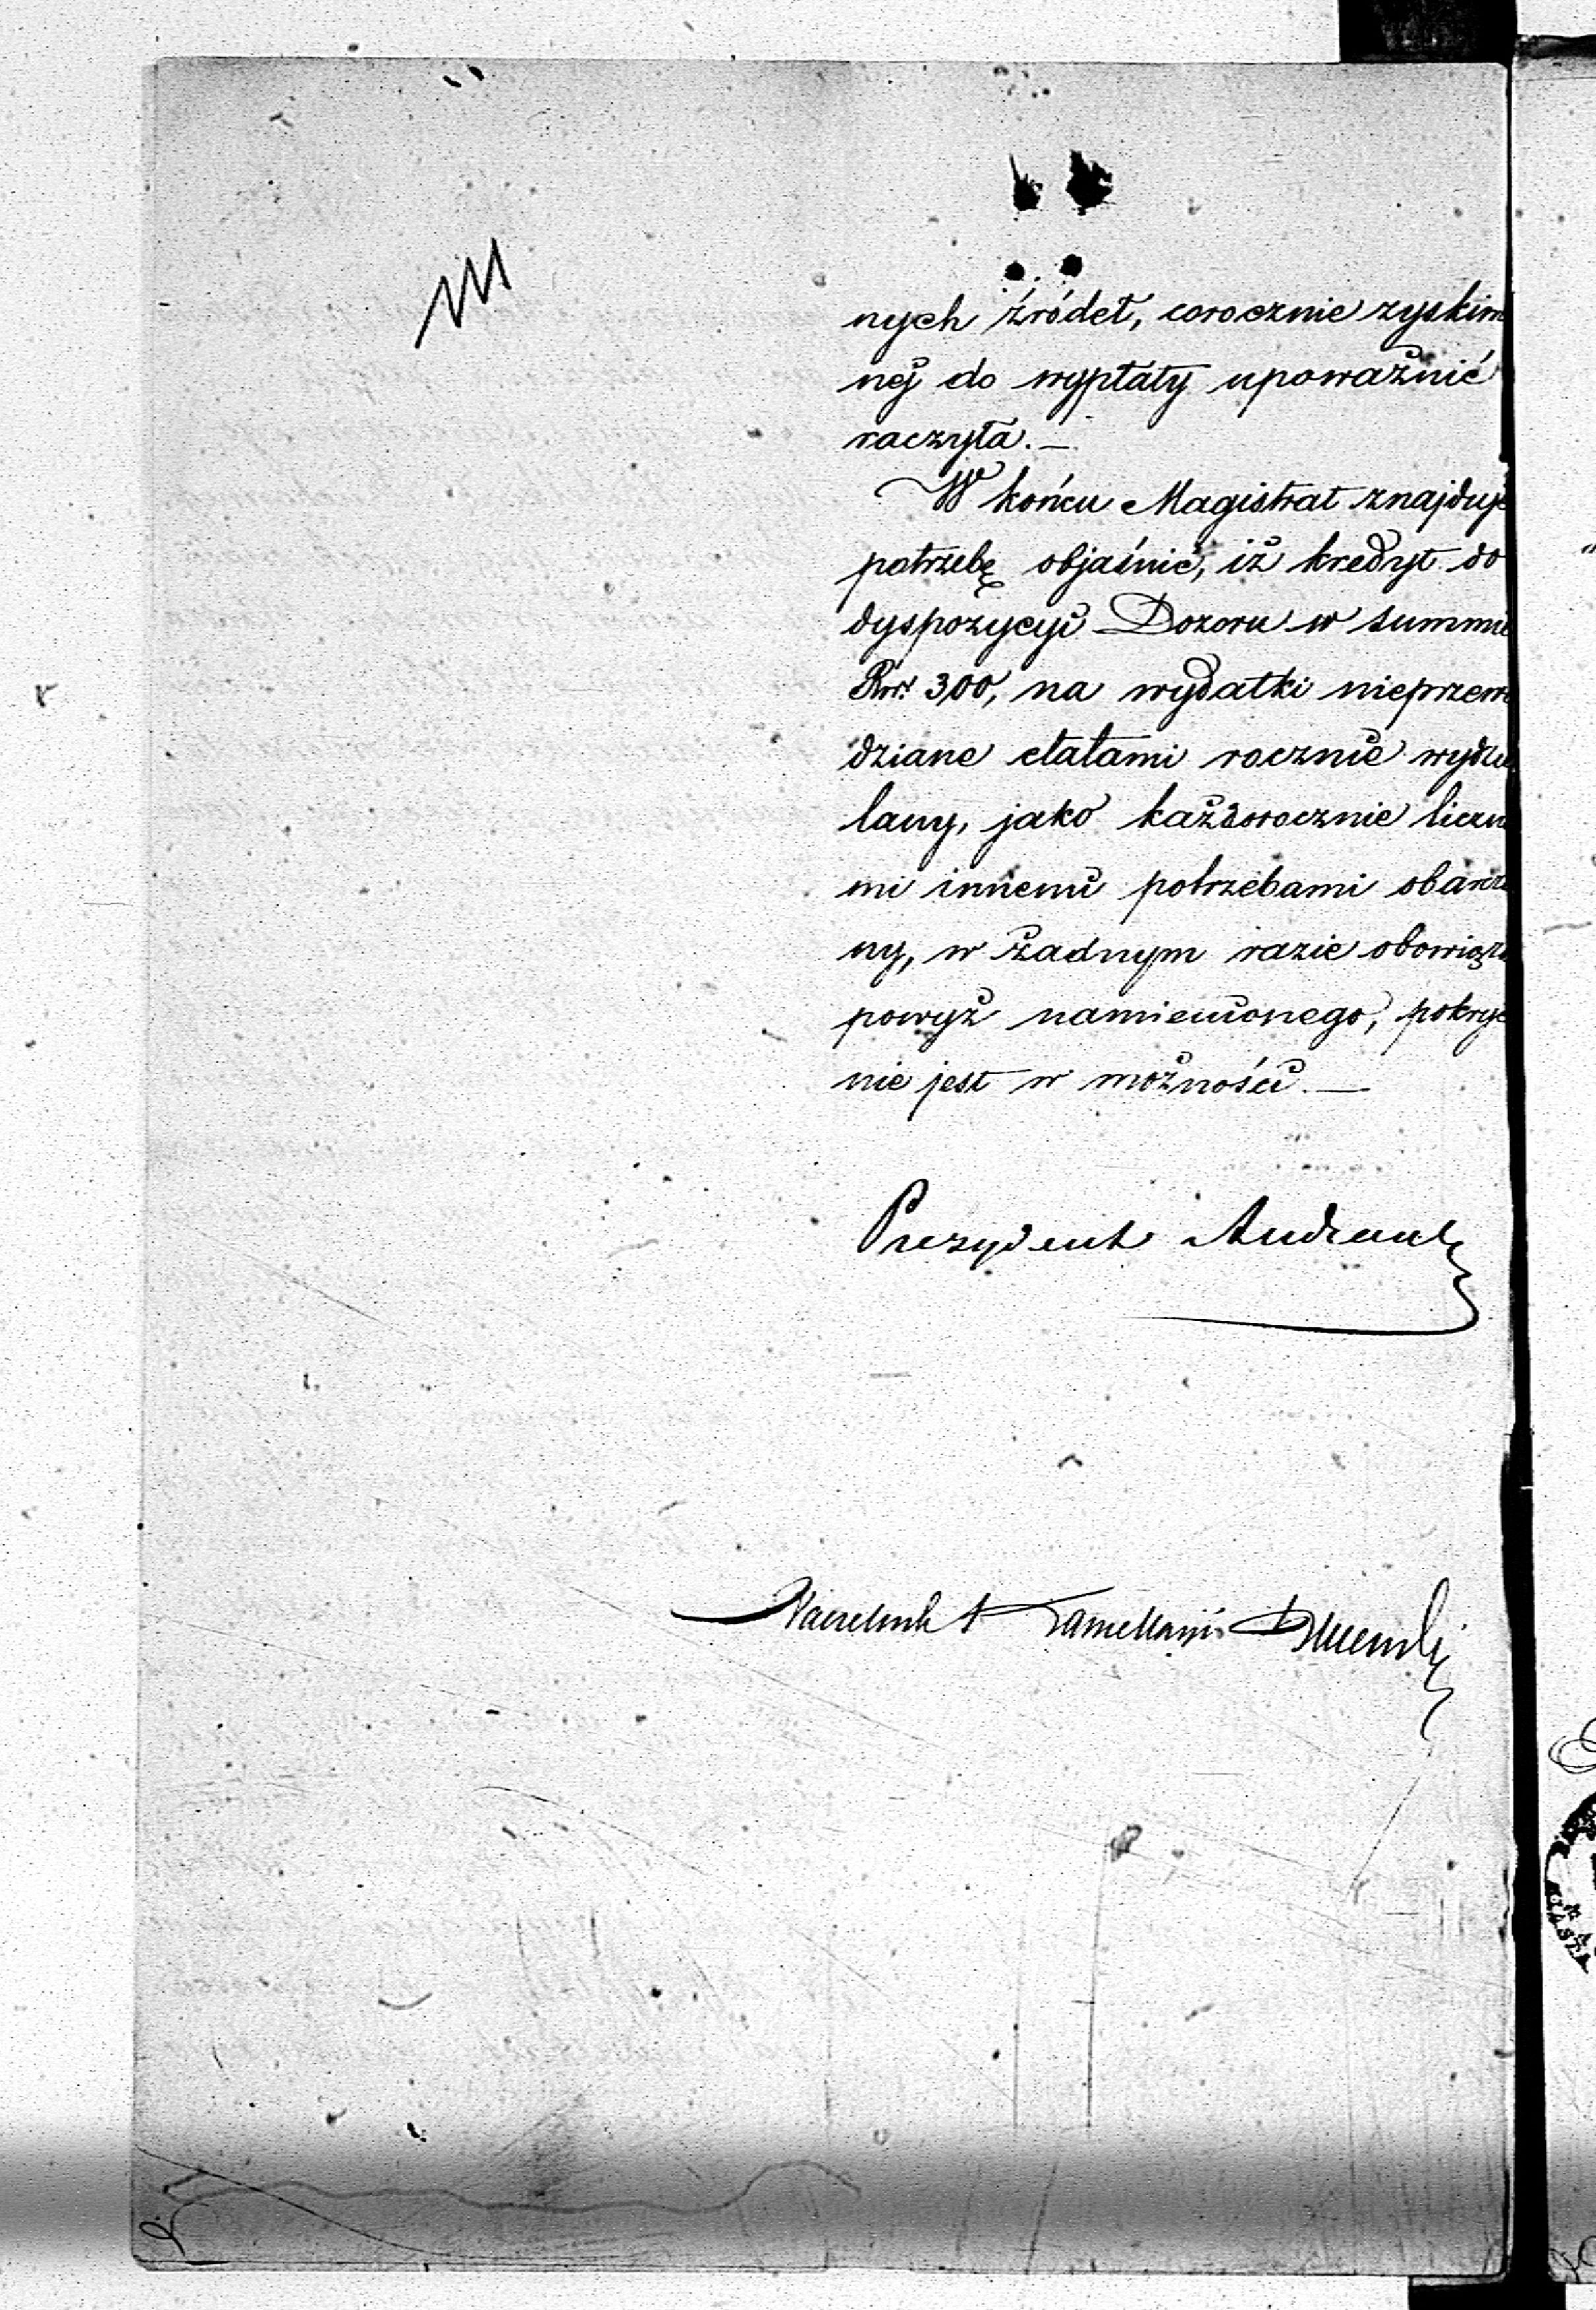 nych źródeł, corocznie zyskim
nej do wypłaty upoważnić
raczyła. —
W końcu Magistrat znajduje
potrzebę objaśnić, iż kredyt do
dyspozycyi Dozoru w summie
Rsr. 300, na wydatki nieprzewi
dziane etatami rocznie wydzie
lany, jako każdorocznie liczne
mi innemi potrzebami obarczo
ny, w żadnym razie obowiązku
powyż namienionego, pokryć
nie jest w możności. —
Prezydent
Naczelnik Kancellaryi